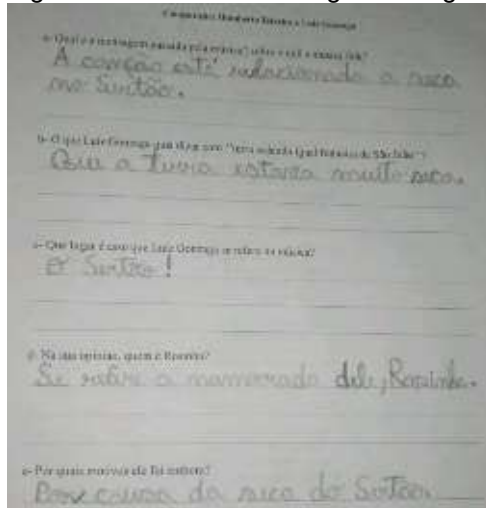 Compositor: Humberto Teixeira e Luiz Gonzaga
a- Qual é a mensagem passada pela música? sobre o quê a música fala?
A canção está relacionado a seca
no Sertão.
b- O que Luiz Gonzaga quis dizer com "terra ardendo igual fogueira de São João"?
Que a terra estava muito seca.
c- Que lugar é esse que Luiz Gonzaga se refere na música?
O Sertão!
d- Na sua opinião, quem é Rosinha?
Se refere a namorada dele, Rosinha.
e- Por quais motivos ele foi embora?
Por causa da seca do Sertão.